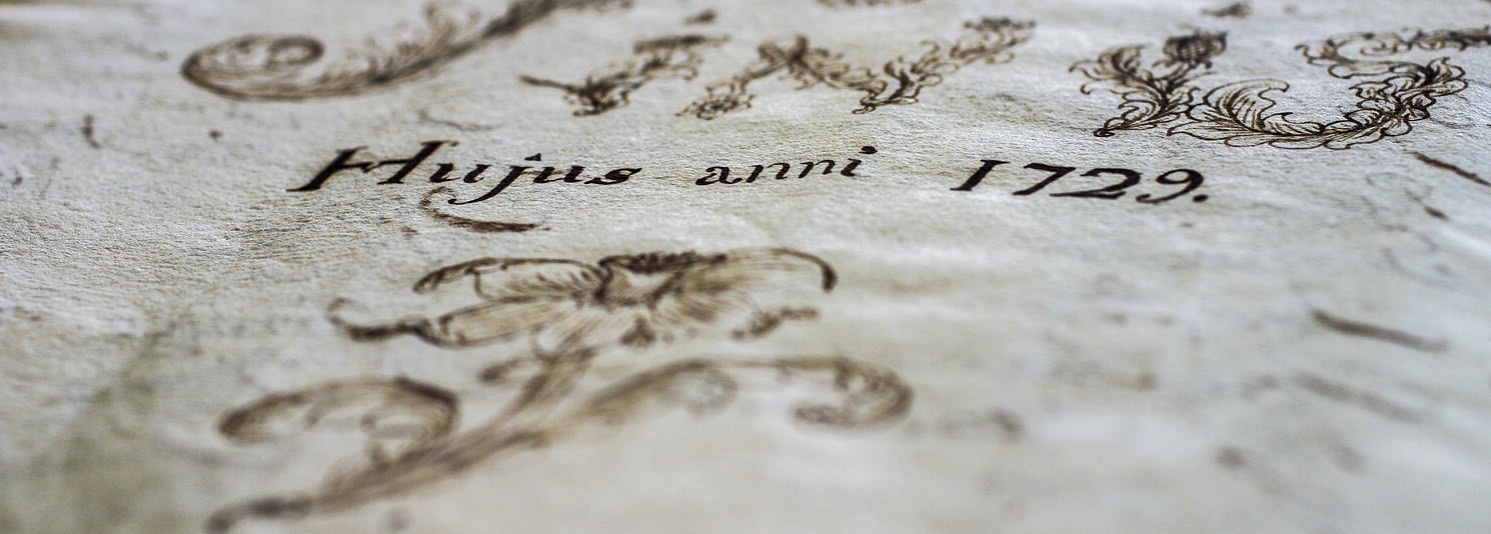 Hujus anni 1729.